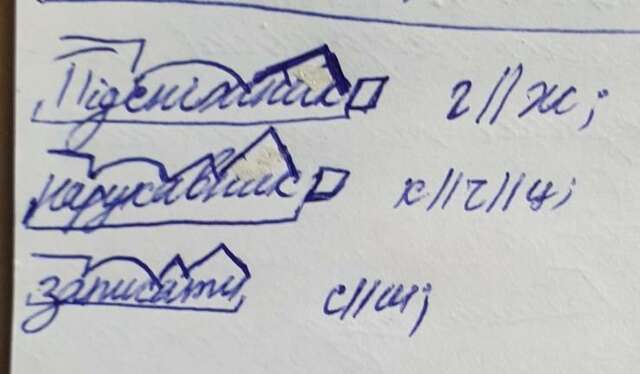 Підсніжник г//ж;
нарукавник к//ч//ц;
записати с//ш;